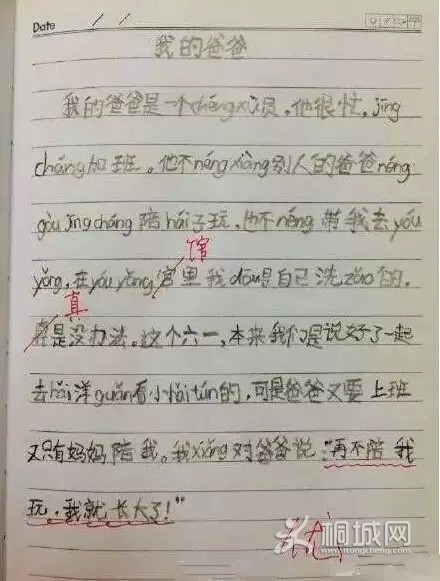 Date / /
我的爸爸
我的爸爸是一个chéngxù员,他很忙,jīng
cháng加班。他不néngxiàng别人的爸爸néng
gòujīngcháng陪hái子玩,也不néng带我去yóu
馆
yǒng,在yóuyǒng宫里我dōu是自己洗zǎo的。
真
是没办法。这个六一,本来我们是说好了一起
去hǎi洋guǎn看小hǎitún的,可是爸爸又要上班
又只有妈妈陪我。我xiǎng对爸爸说:"再不陪我
玩,我就长大了!"
优
桐城网
itongcheng.com